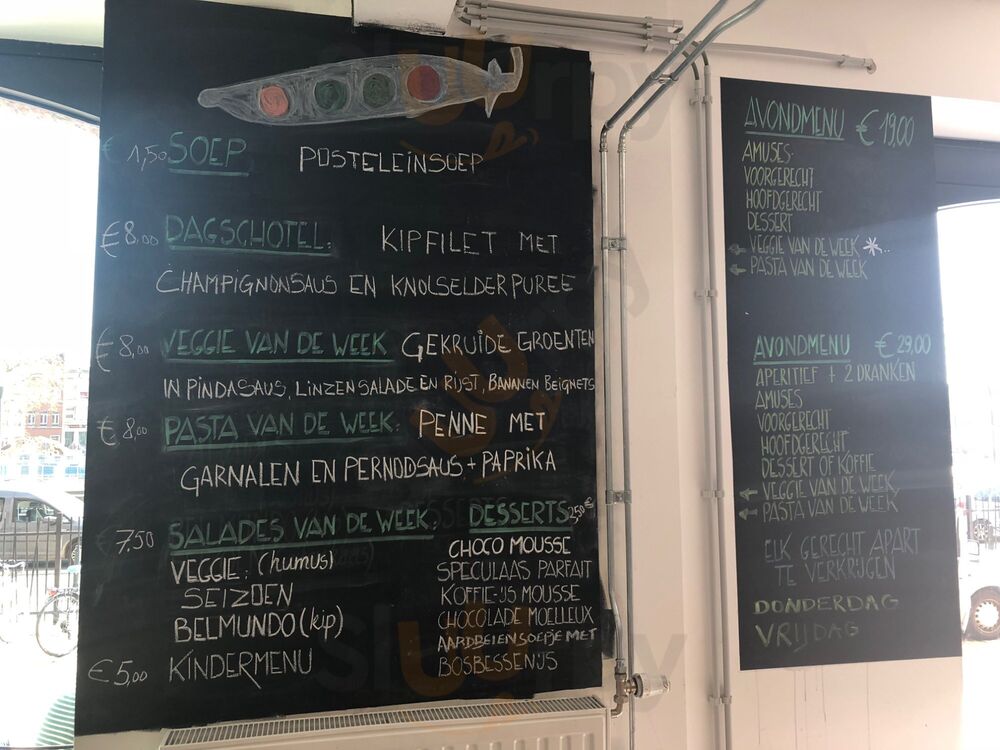 € 1,50 SOEP POSTELEINSOEP
€ 8,00 DAGSCHOTEL: KIPFILET MET
CHAMPIGNONSAUS EN KNOLSELDERPUREE
€ 8,00 VEGGIE VAN DE WEEK GEKRUIDE GROENTEN
IN PINDASAUS, LINZENSALADE EN RIJST, BANANEN BEIGNETS
€ 8,00 PASTA VAN DE WEEK: PENNE MET
GARNALEN EN PERNODSAUS + PAPRIKA
€ 7,50 SALADES VAN DE WEEK:
VEGGIE: (humus)
SEIZOEN
BELMUNDO (kip)
€ 5,00 KINDERMENU
DESSERTS 2,50 €
CHOCO MOUSSE
SPECULAAS PARFAIT
KOFFIE-IJS MOUSSE
CHOCOLADE MOELLEUX
AARDBEIENSOEPJE MET
BOSBESSENIJS
AVONDMENU € 19,00
AMUSES
VOORGERECHT
HOOFDGERECHT
DESSERT
VEGGIE VAN DE WEEK *
PASTA VAN DE WEEK
AVONDMENU € 29,00
APERITIEF + 2 DRANKEN
AMUSES
VOORGERECHT
HOOFDGERECHT
DESSERT OF KOFFIE
VEGGIE VAN DE WEEK
PASTA VAN DE WEEK
ELK GERECHT APART
TE VERKRIJGEN
DONDERDAG
VRIJDAG
Slurpy